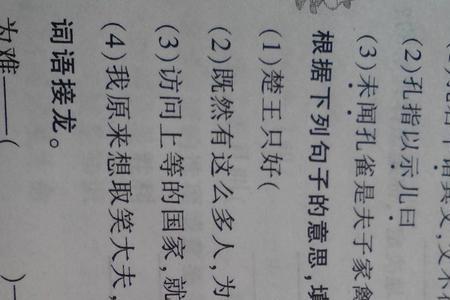 (2)孔指以示儿曰
(3)未闻孔雀是夫子家禽
根据下列句子的意思,填
(1)楚王只好(
(2)既然有这么多人,为
(3)访问上等的国家,就
(4)我原来想取笑大夫,
词语接龙。
为难——(　　)—